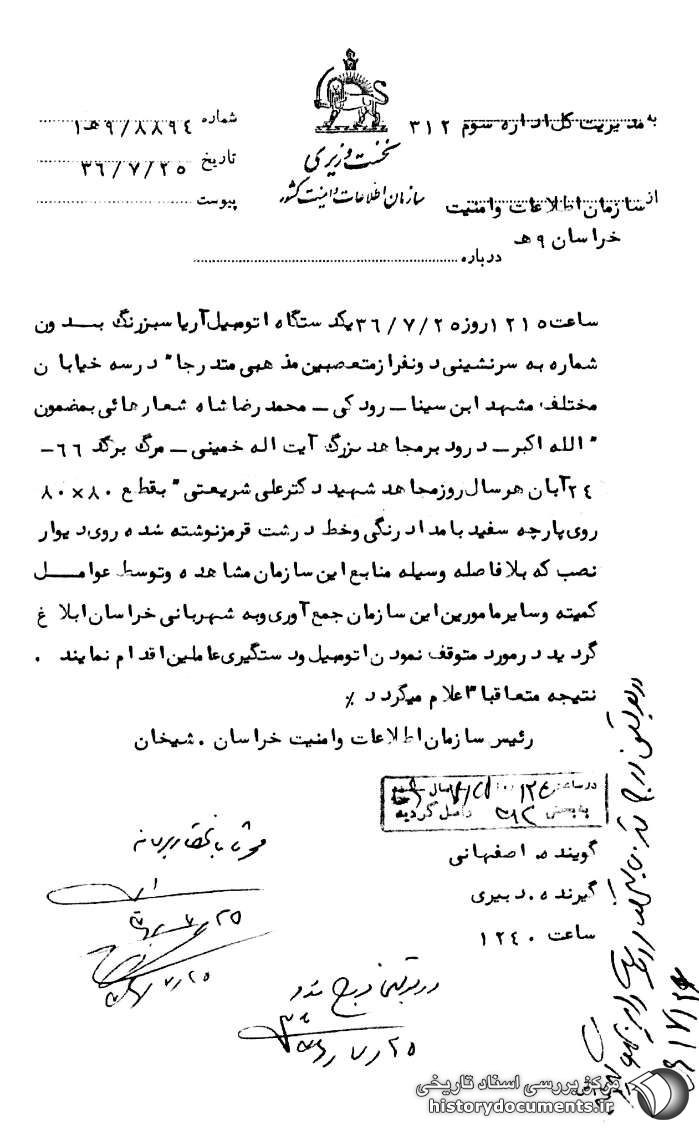 به مدیریت کل اداره سوم ۳۱۲
نخست وزیری
سازمان اطلاعات و امنیت کشور
شماره ۹/۸۸۹۴هـ۱
تاریخ ۳۶/۷/۲۵
پیوست
از سازمان اطلاعات وامنیت
خراسان ۹هـ
درباره
ساعت ۱۲۱۵ روز ۳۶/۷/۲۵ یکدستگاه اتومبیل آریا سبزرنگ بدون
شماره به سرنشینی دونفر ازمتعصبین مذهبی متدرجا" درسه خیابان
مختلف مشهد ابن سینا ـ رودکی ـ محمدرضاشاه شعارهائی بمضمون
"الله اکبر ـ درود برمجاهد بزرگ آیت اله خمینی ـ مرگ برگد ۶۶ -
۲۴ آبان هرسال روزمجاهد شهید دکترعلی شریعتی" بقطع ۸۰×۸۰
روی پارچه سفید بامداد رنگی وخط درشت قرمزنوشته شده روی دیوار
نصب که بلافاصله وسیله منابع این سازمان مشاهده وتوسط عوامل
کمیته وسایرمامورین این سازمان جمع آوری وبه شهربانی خراسان ابلاغ
گردید درمورد متوقف نمودن اتومبیل ودستگیری عاملین اقدام نمایند .
نتیجه متعاقبا" اعلام میگردد ٪
رئیس سازمان اطلاعات وامنیت خراسان . شیخان
در ساعت
به بخش ۳۱۲ واصل گردید
گوینده . اصفهانی
گیرنده . دبیری
ساعت ۱۲۴۰
۲۵/۷/۳۶
۲۵/۷/۳۶
در بولتن درج شود
۲۵/۷/۳۶
مرکز بررسی اسناد تاریخی
historydocuments.ir